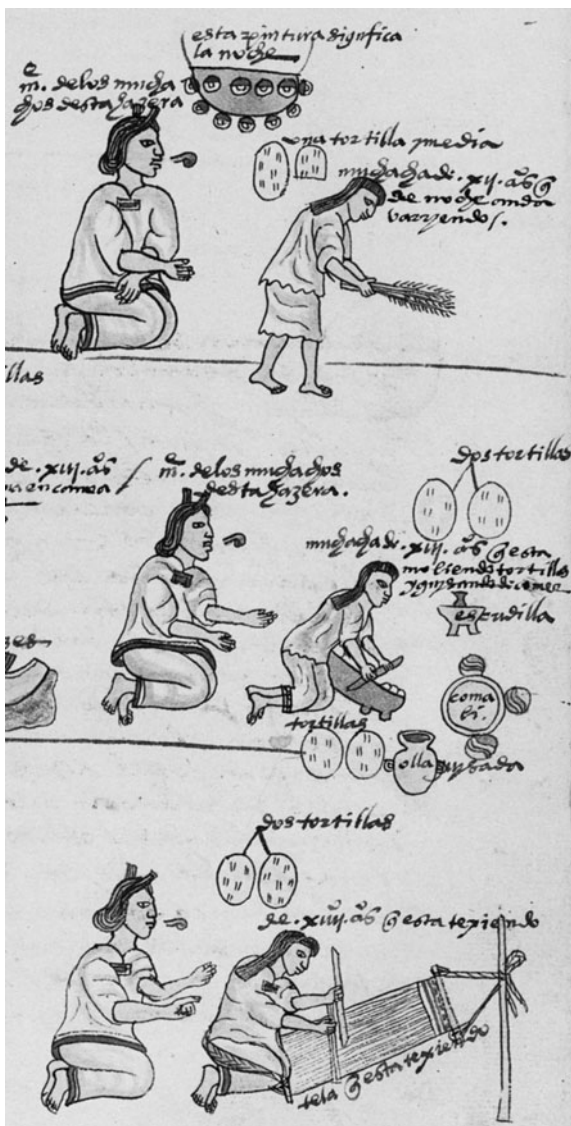 esta pintura signfica
la noche
m. de los mucha
chos desta hazera
una tortilla y media
muchacha de. xij. aºs q̃
de noche anda
varryendo.
llas
de. xiij. aºs
m. de los muchachos
desta hazera.
dos tortillas
muchacha de. xiij. aºs q̃ esta
moliendo tortillas
y guisando de comer
escudilla
coma
li.
tortillas
olla
guisada
dos tortillas
de. xiiij. aºs q̃ esta texiendo
tela q̃ esta texiendo